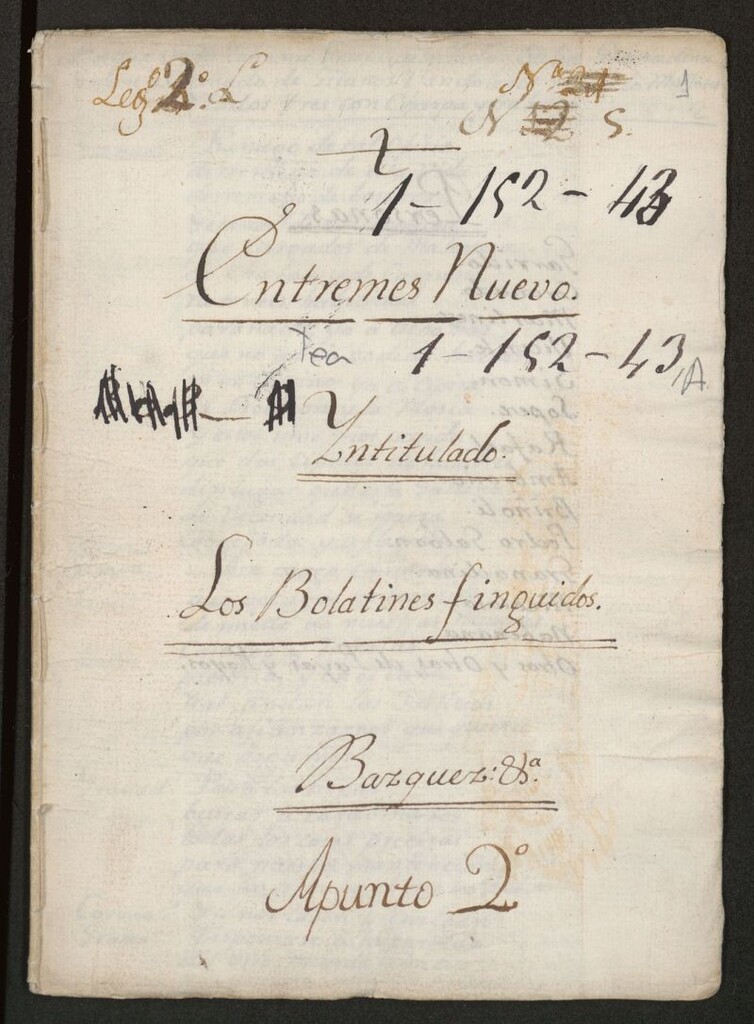 Leg.º 2.º L
Nº 21
1
N 12 5.
1-152-43
Entremes Nuevo.
Tea 1-152-43, A
Yntitulado.
Los Bolatines finguidos.
Bazquez: &ª.
Apunto 2º